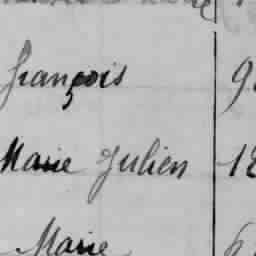 françois 9
Marie Julien 18
Marie 6